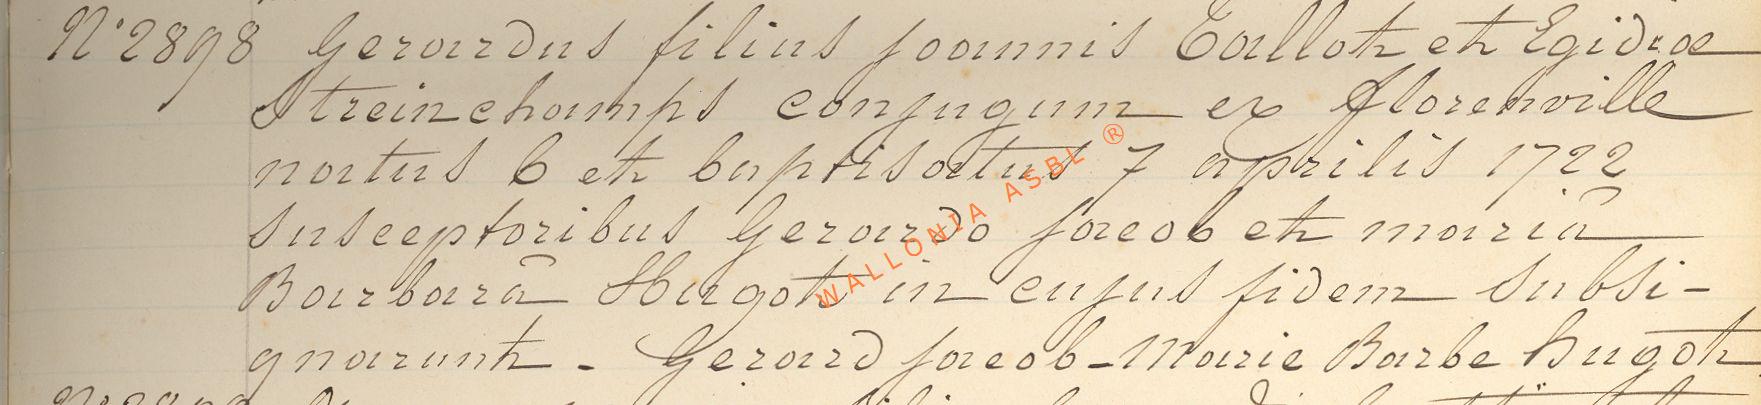 N° 2898 Gerardus filius joannis Tallot et Egidiæ
Streinchamps conjugum ex florenville
natus 6 et baptisatus 7 aprilis 1722
susceptoribus Gerardo jacob et mariâ
Barbarâ Hugot in cujus fidem subsi-
gnarunt - Gerard jacob - Marie Barbe hugot
WALLONIA ASBL ®